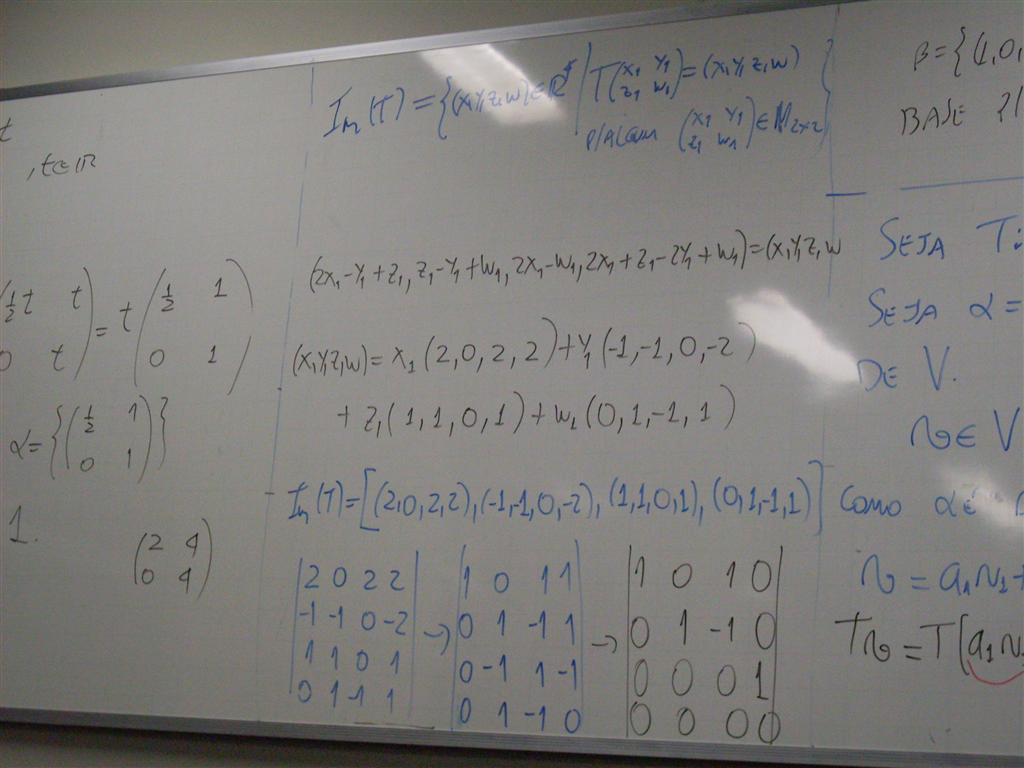 t
, t∈ℝ
½t t
0 t ) = t ( ½ 1
0 1 )
α = { ( ½ 1
0 1 ) }
1.
( 2 4
0 4 )
Im(T) = { (x,y,z,w) ∈ ℝ⁴ / T ( x₁ y₁
z₁ w₁ ) = (x,y,z,w)
P/ALGUM ( x₁ y₁
z₁ w₁ ) ∈ M₂ₓ₂ }
(2x₁-y₁+z₁, z₁-y₁+w₁, 2x₁-w₁, 2x₁+z₁-2y₁+w₁) = (x,y,z,w
(x,y,z,w) = x₁(2,0,2,2) + y₁(-1,-1,0,-2)
+ z₁(1,1,0,1) + w₁(0,1,-1,1)
Im(T) = [(2,0,2,2), (-1,-1,0,-2), (1,1,0,1), (0,1,-1,1)]
| 2 0 2 2 | | 1 0 1 1 | | 1 0 1 0 |
| -1 -1 0 -2 | → | 0 1 -1 1 | → | 0 1 -1 0 |
| 1 1 0 1 | | 0 -1 1 -1 | | 0 0 0 1 |
| 0 1 -1 1 | | 0 1 -1 0 | | 0 0 0 0 |
β = { (1,0,
BASE
SEJA T:
SEJA α =
DE V.
v ∈ V
COMO α É
v = a₁v₁ +
Tv = T(a₁v₁